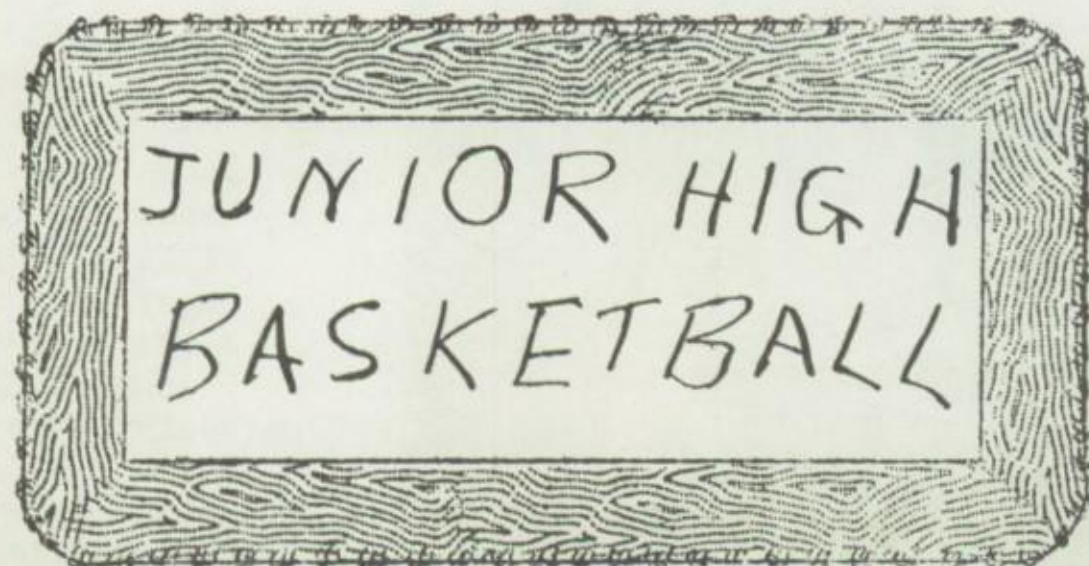 JUNIOR HIGH
BASKETBALL